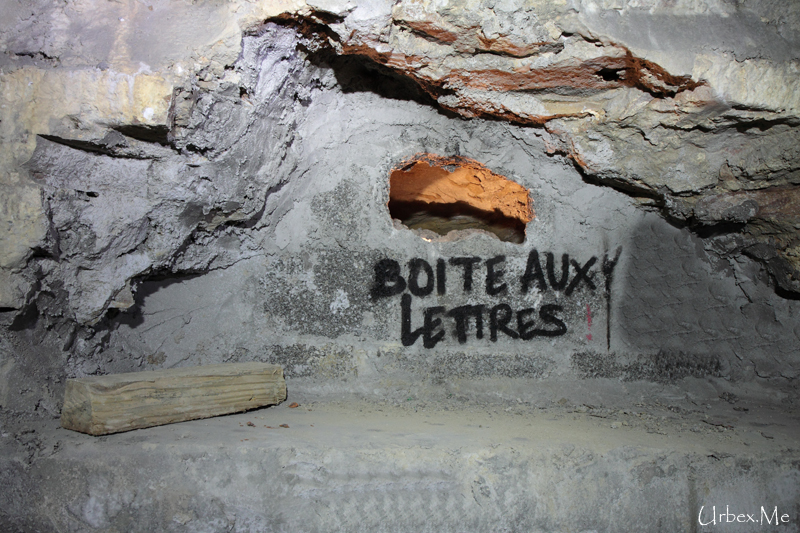 BOITE AUX
LETTRES !
Urbex.Me